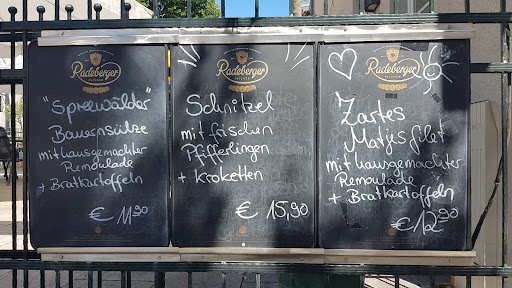 Radeberger
PILSNER
"Spreewälder"
Bauernsülze
mit hausgemachter
Remoulade
+ Bratkartoffeln
€ 11.90
Radeberger
PILSNER
Schnitzel
mit frischen
Pfifferlingen
+ Kroketten
€ 15,90
Radeberger
PILSNER
Zartes
Matjesfilet
mit hausgemachter
Remoulade
+ Bratkartoffeln
€ 12.90